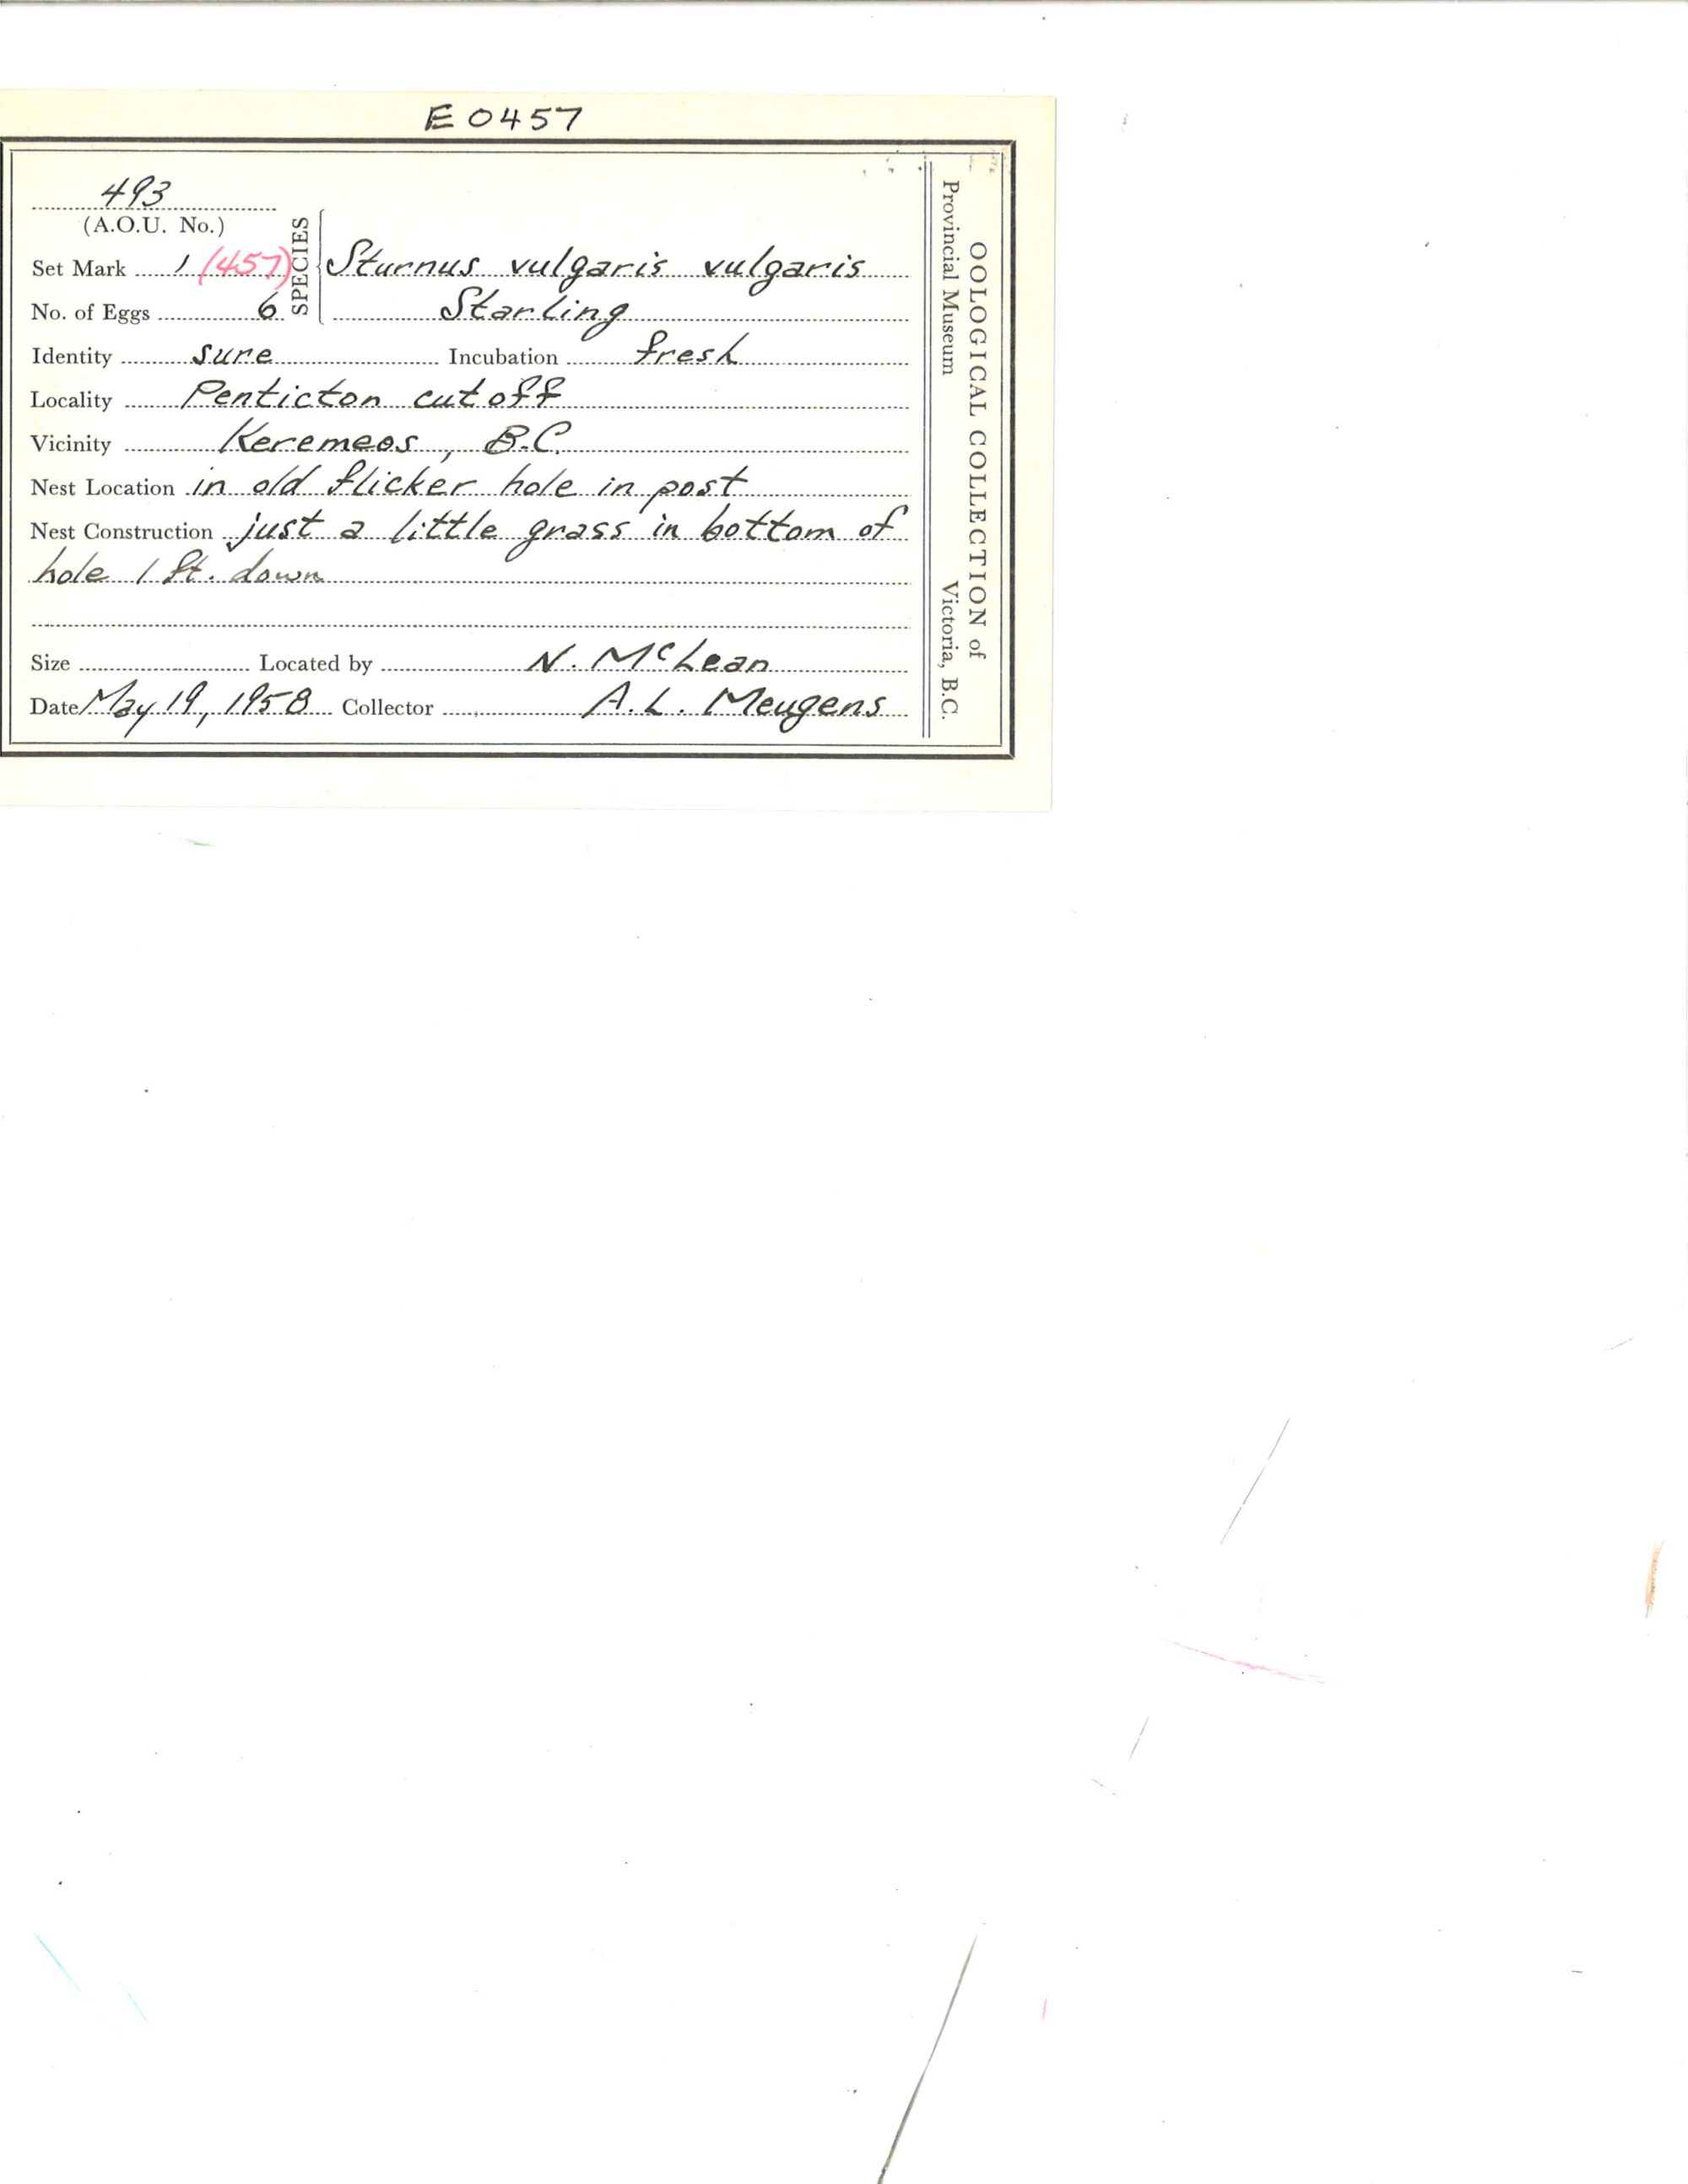 E 0457
493
(A.O.U. No.)
Set Mark 1 (457)
No. of Eggs 6
SPECIES
Sturnus vulgaris vulgaris
Starling
Identity sure Incubation fresh
Locality Penticton cut off
Vicinity Keremeos, B.C.
Nest Location in old flicker hole in post
Nest Construction just a little grass in bottom of
hole 1 ft. down
Size Located by N. McLean
Date May 19, 1958 Collector A.L. Meugens
OOLOGICAL COLLECTION of
Provincial Museum Victoria, B.C.